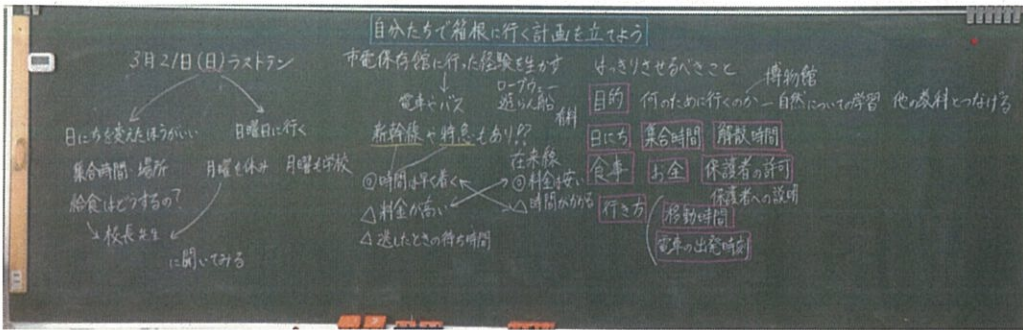 自分たちで箱根に行く計画を立てよう
3月21日(日)ラストラン
日にちを変えたほうがいい
日曜日に行く
集合時間 場所
月曜も休み
月曜も学校
給食はどうするの?
校長先生
に聞いてみる
市電保存館に行った経験を生かす
電車やバス
ロープウェー
遊らん船
有料
新幹線や特急もあり!?
◎時間は早く着く
△料金が高い
△逃したときの待ち時間
在来線
◎料金は安い
△時間がかかる
はっきりさせるべきこと
博物館
目的 何のために行くのか―自然についての学習 他の教科とつなげる
日にち 集合時間 解散時間
食事 お金 保護者の許可
保護者への説明
行き方 移動時間
電車の出発時刻